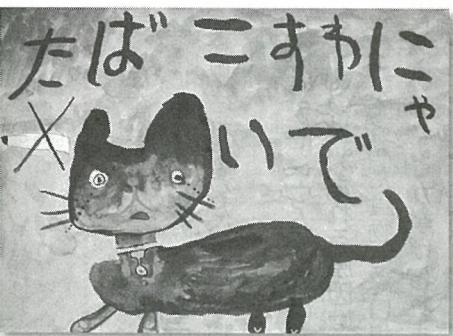 たばこすわにゃ
いで